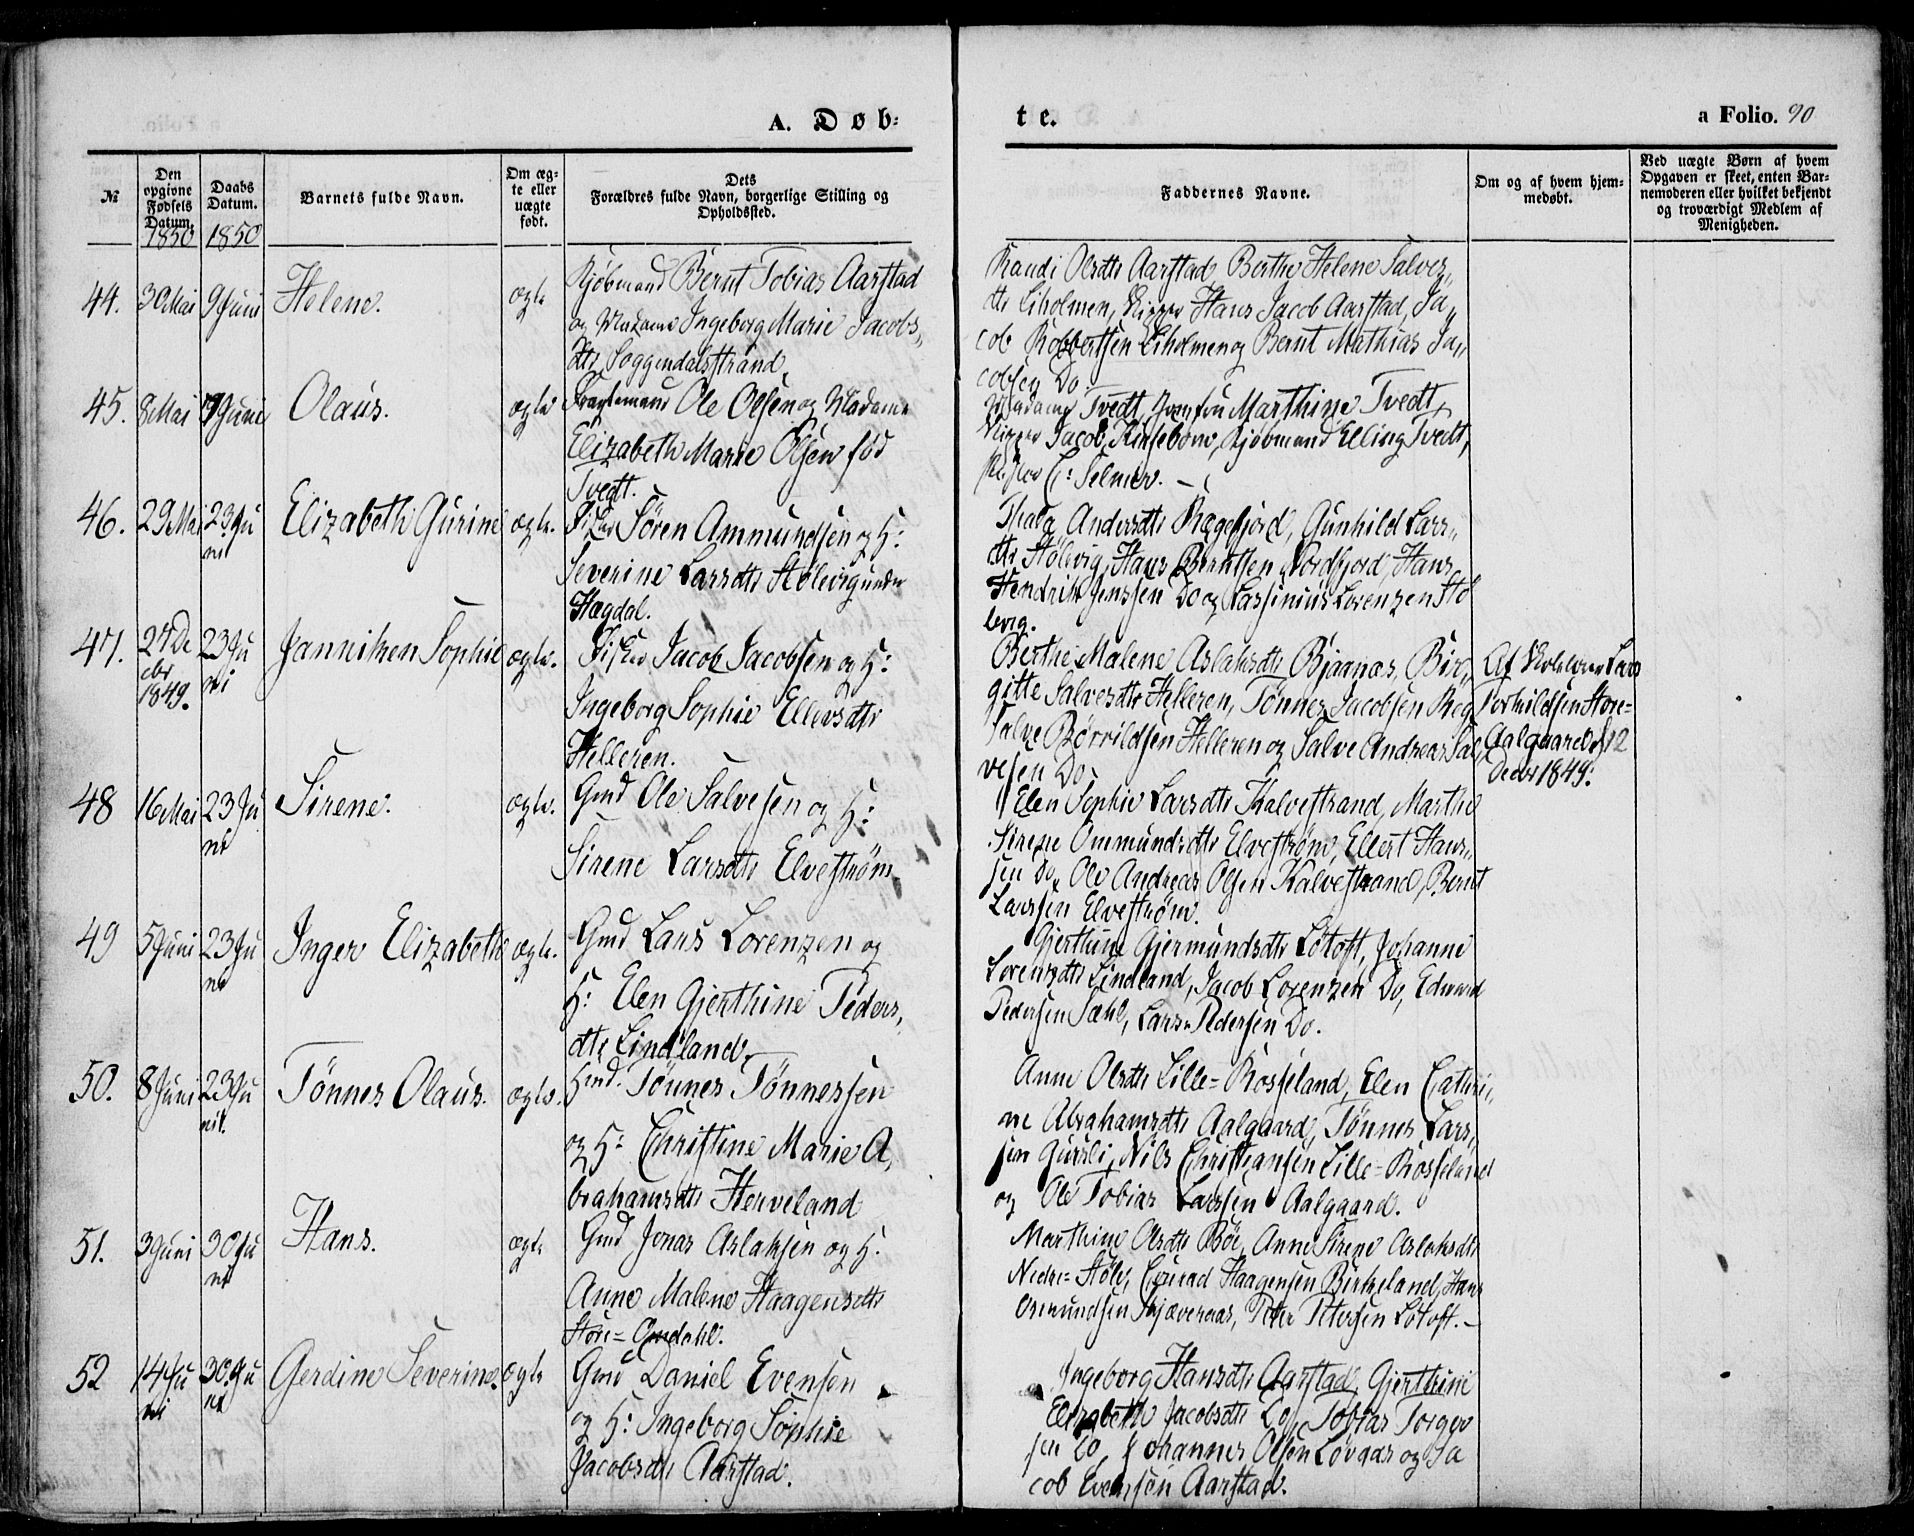 A. Døb-
te.
a Folio. 90
№
Den opgivne Fødsels Datum.
Daabs Datum.
Barnets fulde Navn.
Om ægte eller uægte født.
Dets Forældres fulde Navn, borgerlige Stilling og Opholdssted.
Faddernes Navne.
Om og af hvem hjemmedøbt.
Ved uægte Børn af hvem Opgaven er skeet, enten Barnemoderen eller hvilket bekjendt og troværdigt Medlem af Menigheden.
1850 1850
44. 30 Mai 9 Juni Helene. ægte
Kjøbmand Bernt Tobias Aarstad
og Madame Ingeborg Marie Jacobs„
dtr Soggendalsstrand.
Randi Olsdtr Aarstad, Berthe Helene Salves„
dtr Eiholmen, Skipper Hans Jacob Aarstad, Ja„
cob Robbertsen Eiholmen og Bernt Mathias Ja„
cobsen Do.
45. 8 Mai 9 Juni Olaus. ægte
Ole Olsen og Madame
Elizabeth Marie Olsen fød
Tvedt.
Madame Tvedt, Jomfru Marthine Tvedt,
Skipper Jacob, Kjøbmand Elling Tvedt,
C: Selmer. —
46. 29 Mai 23 Ju
ni Elizabeth Gurine ægte.
Fisker Sören Ammundsen og H:
Severine Larsdtr Stölevig under
Hægdal.
Andersdtr Rægefjord, Gunhild Lars„
dtr Stölevig, Hans Berntsen Nordfjord, Hans
Hendrik Jenssen Do og Larsinius Lorenzen Stö
levig.
47. 27 De
cbr
1849. 23 Ju
ni Janniken Sophie ægte.
Fisker Jacob Jacobsen og H:
Ingeborg Sophie Ellevsdtr
Helleren.
Berthe Malene Aslaksdtr Bjaanæs, Bir„
gitte Salvesdtr Helleren, Tönnes Jacobsen Reg
Salve Börrildsen Helleren og Salve Andreas Sal„
vesen Do
Af Skoleholder Lars
Torkildsen Store=
Aalgaard d 12
Decbr 1849.
48 16 Mai 23 Ju
ni Sirene. ægte.
Gmd Ole Salvesen og H:
Sirene Larsdtr Elvestrøm
Elen Sophie Larsdtr Kalvestrand, Marthe
Sirene Ommundsdtr Elvestrøm, Ellert Hans„
sen Do, Ole Andreas Olsen Kalvestrand, Bernt
Larssen Elvestrøm.
49 5 Juni 23 Ju
ni Inger Elizabeth ægte.
Gmd Laus Lorenzen og
H: Elen Gjerthine Peders„
dtr Lindland.
Gjerthine Gjermundsdtr Løtoft, Johanne
Lorensdtr Lindland, Jacob Lorenzen Do, Edward
Pedersen Sæhl, Lars Pedersen Do.
50. 8 Juni 23 Ju
ni. Tönnes Olaus. ægte.
Hmd. Tönnes Tönnessen
og H: Christine Marie A„
brahamsdtr Herveland
Anne Olsdtr Lille=Rosseland, Elen Cathri„
ne Abrahamsdtr Aalgaard, Tönnes Lars„
sen Gursli, Nils Christiansen Lille=Rosseland
og Ole Tobias Larssen Aalgaard.
51. 3 Juni 30 Ju
ni Hans. ægte
Gmd Jonas Aslaksen og H.
Anne Malene Haagensdtr
Store=Omdahl.
Marthine Olsdtr Böe, Anne Sirene Aslaksdtr
Nedre=Støle, Conrad Haagensen Birkeland, Hans
Osmundsen Skjæveraas, Peter Petersen Løtoft. —
52 14 Ju
ni 30 Ju
ni Gerdine Severine. ægte
Gmd Daniel Evensen
og H: Ingeborg Sophie
Jacobsdtr Aarstad.
Ingeborg Hansdtr Aarstad, Gjerthine
Elizabeth Jacobsdtr Do, Tobias Torger
sen Do, Johannes Olsen Løvaas og Ja
cob Evensen Aarstad.